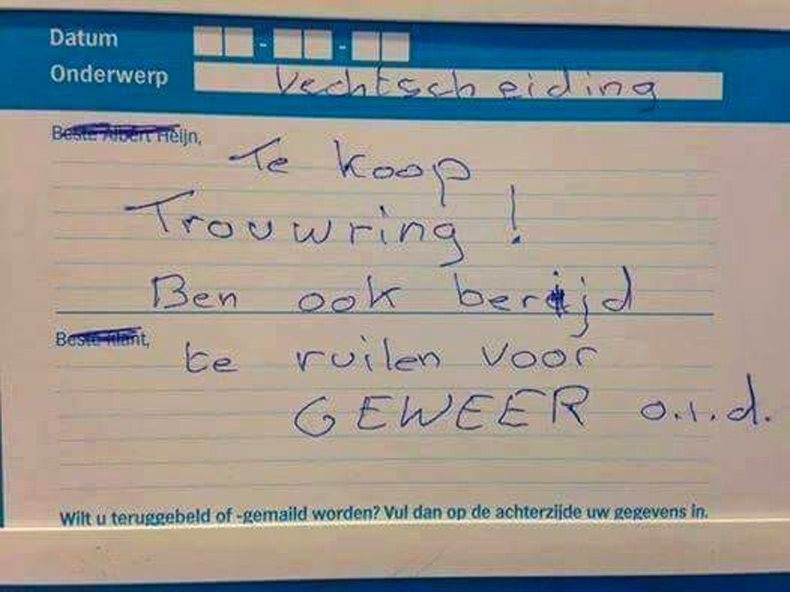 Datum
Onderwerp Vechtscheiding
Beste Albert Heijn,
Te koop
Trouwring!
Ben ook berijd
Beste klant,
te ruilen voor
GEWEER o.i.d.
Wilt u teruggebeld of -gemaild worden? Vul dan op de achterzijde uw gegevens in.